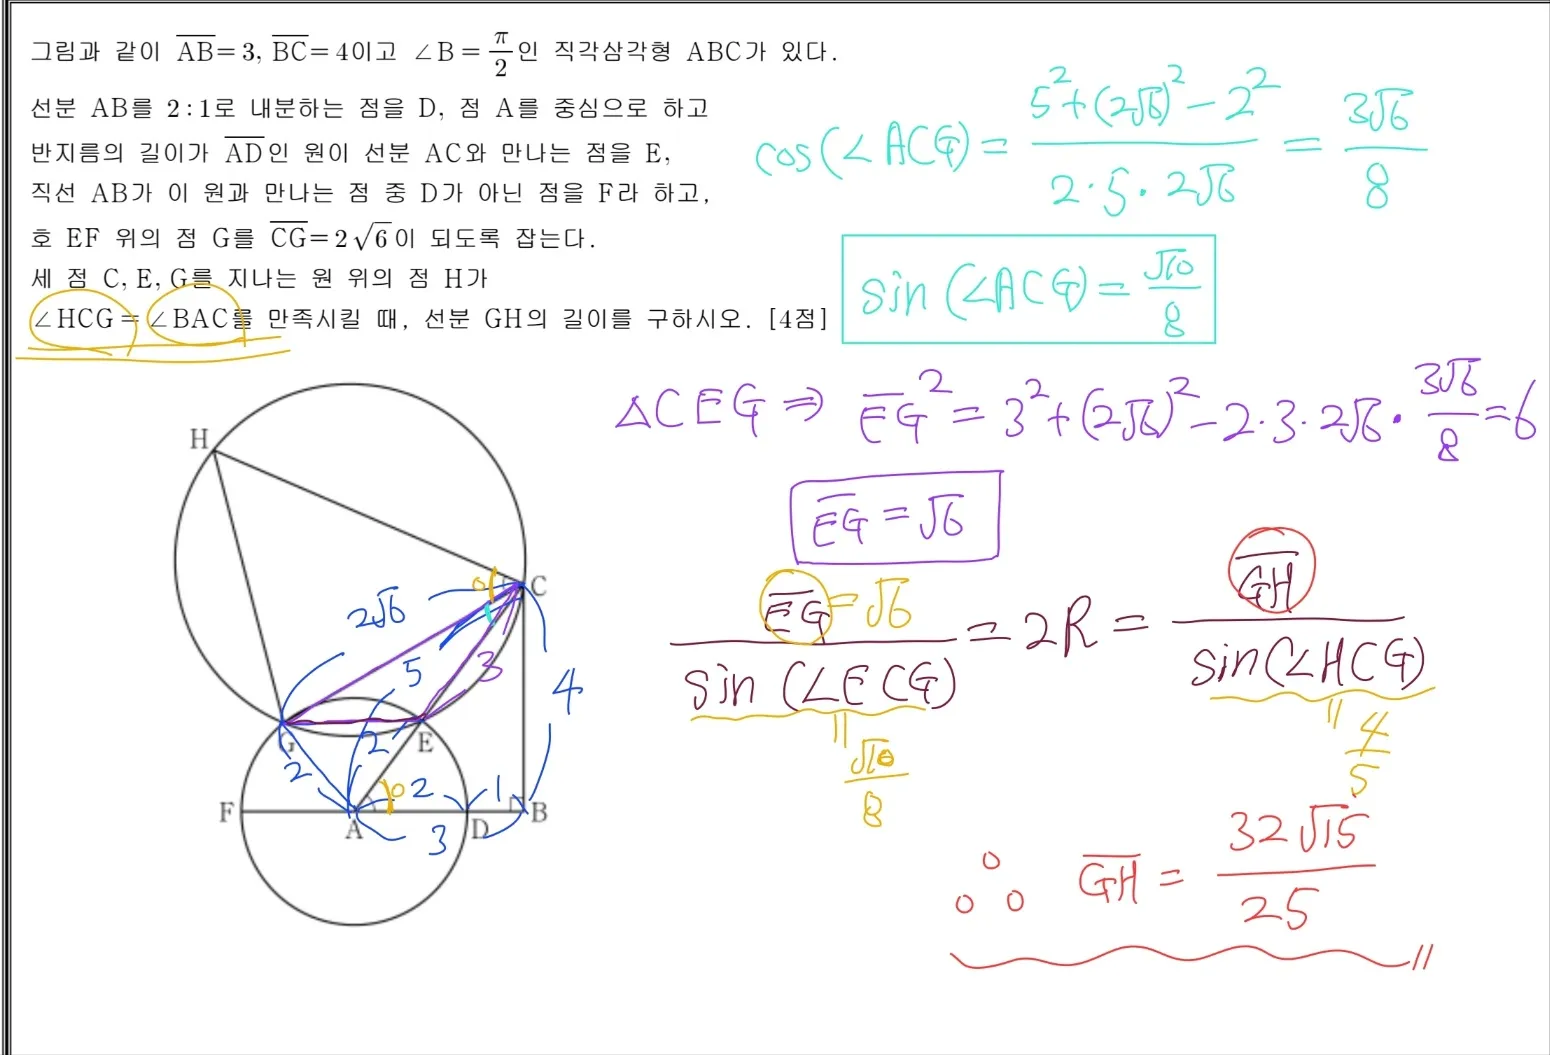 그림과 같이 AB=3, BC=4이고 ∠B=π/2인 직각삼각형 ABC가 있다.
선분 AB를 2:1로 내분하는 점을 D, 점 A를 중심으로 하고
반지름의 길이가 AD인 원이 선분 AC와 만나는 점을 E,
직선 AB가 이 원과 만나는 점 중 D가 아닌 점을 F라 하고,
호 EF 위의 점 G를 CG=2√6이 되도록 잡는다.
세 점 C, E, G를 지나는 원 위의 점 H가
∠HCG=∠BAC를 만족시킬 때, 선분 GH의 길이를 구하시오. [4점]
cos(∠ACG) = (5²+(2√6)²-2²)/(2·5·2√6) = 3√6/8
sin(∠ACG) = √10/8
△CEG ⇒ EG² = 3²+(2√6)²-2·3·2√6·3√6/8=6
EG = √6
EG=√6/sin(∠ECG) = 2R = GH/sin(∠HCG)
√10/8
4/5
∴ GH = 32√15/25
H
C
2√6
5
3
4
G
E
2
2
2
1
F
A
D
B
3